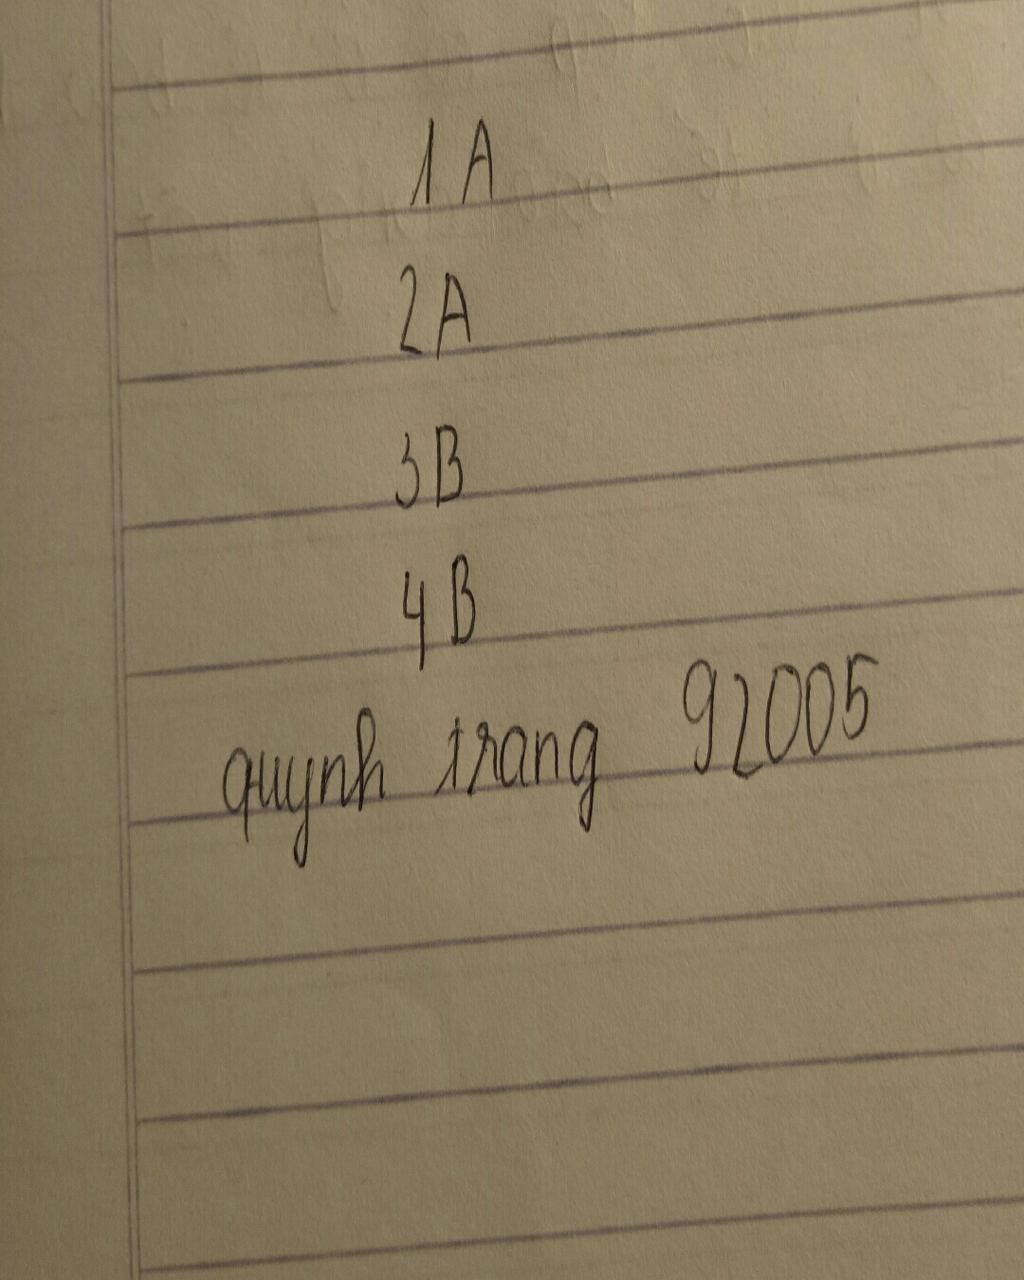 1A
2A
3B
4B
quynh trang 92005